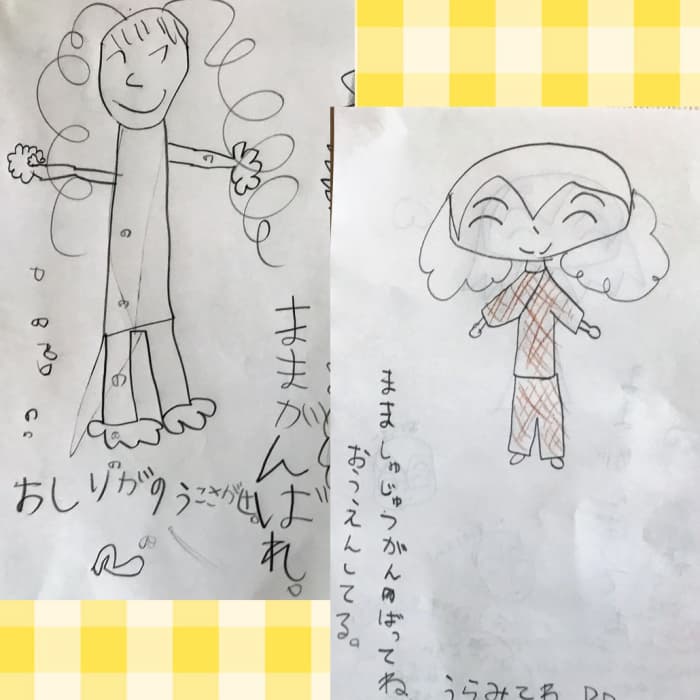 ままがんばれ。
おしり さがせ。
まましゅじゅつがんばってね
おうえんしてる。
うらみてね